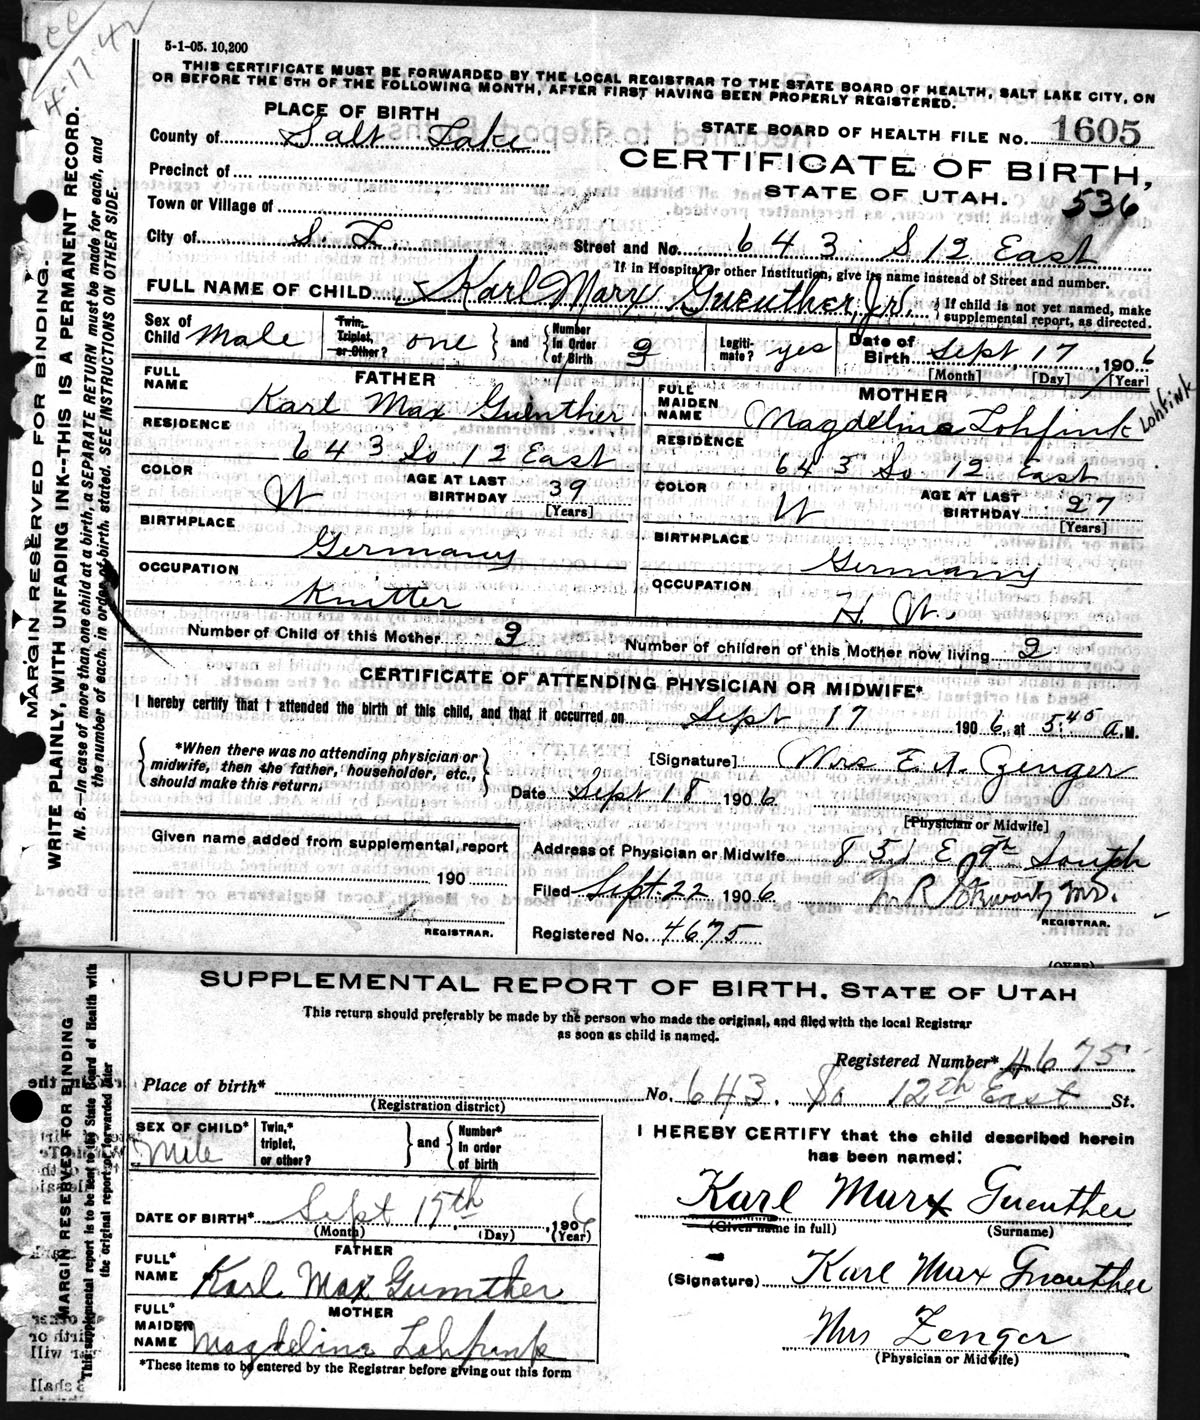 cc
4-17-42
5-1-05. 10,200
THIS CERTIFICATE MUST BE FORWARDED BY THE LOCAL REGISTRAR TO THE STATE BOARD OF HEALTH, SALT LAKE CITY, ON
OR BEFORE THE 5TH OF THE FOLLOWING MONTH, AFTER FIRST HAVING BEEN PROPERLY REGISTERED.
PLACE OF BIRTH
County of Salt Lake
STATE BOARD OF HEALTH FILE No. 1605
CERTIFICATE OF BIRTH,
Precinct of
STATE OF UTAH.
536
Town or Village of
City of S L. Street and No. 643 S 12 East
If in Hospital or other Institution, give its name instead of Street and number.
FULL NAME OF CHILD Karl Marx Guenther, Jr. } If child is not yet named, make
supplemental report, as directed.
Sex of Child Male Twin, Triplet, or Other? one } and { Number in Order of Birth 2 Legiti-mate? yes Date of Birth Sept 17, 1906
[Month] [Day] [Year]
FATHER
MOTHER
FULL NAME Karl Max Guenther
FULL MAIDEN NAME Magdelina Lohfink
Lohfink
RESIDENCE 643 So 12 East
RESIDENCE 643 So 12 East
COLOR W AGE AT LAST BIRTHDAY 39 [Years]
COLOR W AGE AT LAST BIRTHDAY 27 [Years]
BIRTHPLACE Germany
BIRTHPLACE Germany
OCCUPATION Knitter
OCCUPATION H. W.
Number of Child of this Mother 2 Number of children of this Mother now living 2
CERTIFICATE OF ATTENDING PHYSICIAN OR MIDWIFE*
I hereby certify that I attended the birth of this child, and that it occurred on Sept 17 1906, at 5:45 a.M.
{ *When there was no attending physician or
midwife, then the father, householder, etc.,
should make this return. }
[Signature] Mrs E. A. Zenger
Date Sept 18 1906
[Physician or Midwife]
Given name added from supplemental report
190
REGISTRAR.
Address of Physician or Midwife 851 E 9th South
Filed Sept. 22 1906
REGISTRAR.
Registered No. 4675
(OVER)
MARGIN RESERVED FOR BINDING
WRITE PLAINLY, WITH UNFADING INK--THIS IS A PERMANENT RECORD.
N. B.—In case of more than one child at a birth, a SEPARATE RETURN must be made for each, and
the number of each, in order of birth, stated. SEE INSTRUCTIONS ON OTHER SIDE.
SUPPLEMENTAL REPORT OF BIRTH, STATE OF UTAH
This return should preferably be made by the person who made the original, and filed with the local Registrar
as soon as child is named.
Registered Number* 4675
Place of birth* No. 643. So 12th East St.
(Registration district)
SEX OF CHILD* Male Twin,* triplet, or other? } and { Number* in order of birth
I HEREBY CERTIFY that the child described herein
has been named:
Karl Marx Guenther
(Given name in full) (Surname)
DATE OF BIRTH* Sept 17th, 1906
(Month) (Day) (Year)
FATHER
FULL* NAME Karl Max Gumther
(Signature) Karl Max Guenther
MOTHER
FULL* MAIDEN NAME Magdelina Lohfink
Mrs Zenger
(Physician or Midwife)
*These items to be entered by the Registrar before giving out this form
MARGIN RESERVED FOR BINDING
This supplemental report is to be sent to the State Board of Health with
the original report of forwarded later